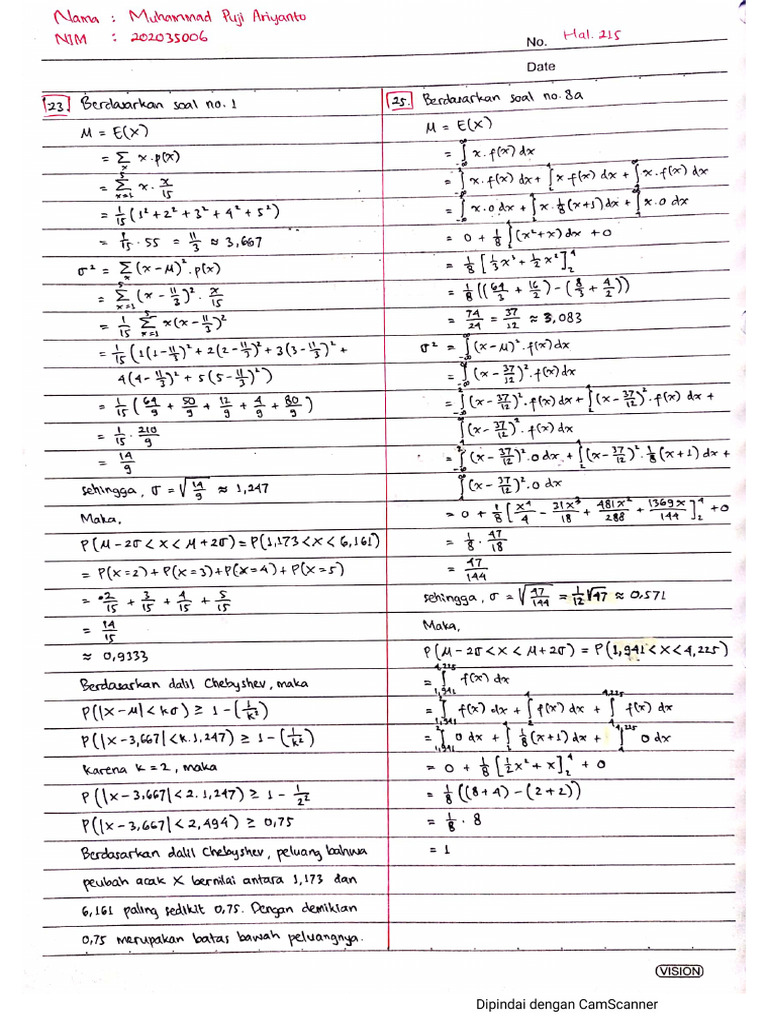 Nama : Muhammad Puji Ariyanto
NIM : 202035006
No. Hal. 215
Date
23. Berdasarkan soal no. 1
M = E(X)
= Σ_x x·p(x)
= Σ_{x=1}^{5} x · x/15
= 1/15 (1² + 2² + 3² + 4² + 5²)
= 1/15 · 55 = 11/3 ≈ 3,667
σ² = Σ_x (x-μ)² · p(x)
= Σ_{x=1}^{5} (x - 11/3)² · x/15
= 1/15 Σ_{x=1}^{5} x(x - 11/3)²
= 1/15 (1(1-11/3)² + 2(2-11/3)² + 3(3-11/3)² +
4(4-11/3)² + 5(5-11/3)²)
= 1/15 (64/9 + 50/9 + 12/9 + 4/9 + 80/9)
= 1/15 · 210/9
= 14/9
sehingga, σ = √(14/9) ≈ 1,247
Maka,
P(μ-2σ < X < μ+2σ) = P(1,173 < X < 6,161)
= P(X=2) + P(X=3) + P(X=4) + P(X=5)
= 2/15 + 3/15 + 4/15 + 5/15
= 14/15
≈ 0,9333
Berdasarkan dalil Chebyshev, maka
P(|X-μ| < kσ) ≥ 1 - (1/k²)
P(|X-3,667| < k.1,247) ≥ 1 - (1/k²)
Karena k = 2, maka
P(|X-3,667| < 2.1,247) ≥ 1 - 1/2²
P(|X-3,667| < 2,494) ≥ 0,75
Berdasarkan dalil Chebyshev, peluang bahwa
peubah acak X bernilai antara 1,173 dan
6,161 paling sedikit 0,75. Dengan demikian
0,75 merupakan batas bawah peluangnya.
25. Berdasarkan soal no. 8a
M = E(X)
= ∫_{-∞}^{∞} x·f(x) dx
= ∫_{-∞}^{2} x·f(x) dx + ∫_{2}^{4} x·f(x) dx + ∫_{4}^{∞} x·f(x) dx
= ∫_{-∞}^{2} x·0 dx + ∫_{2}^{4} x·1/8(x+1) dx + ∫_{4}^{∞} x·0 dx
= 0 + 1/8 ∫_{2}^{4} (x²+x) dx + 0
= 1/8 [1/3 x³ + 1/2 x²]_{2}^{4}
= 1/8 ((64/3 + 16/2) - (8/3 + 4/2))
= 74/24 = 37/12 ≈ 3,083
σ² = ∫_{-∞}^{∞} (x-μ)² · f(x) dx
= ∫_{-∞}^{∞} (x - 37/12)² · f(x) dx
= ∫_{-∞}^{2} (x - 37/12)² · f(x) dx + ∫_{2}^{4} (x - 37/12)² · f(x) dx +
∫_{4}^{∞} (x - 37/12)² · f(x) dx
= ∫_{-∞}^{2} (x - 37/12)² · 0 dx + ∫_{2}^{4} (x - 37/12)² · 1/8 (x+1) dx +
∫_{4}^{∞} (x - 37/12)² · 0 dx
= 0 + 1/8 [x⁴/4 - 31x³/18 + 481x²/288 + 1369x/144]_{2}^{4} + 0
= 1/8 · 47/18
= 47/144
sehingga, σ = √(47/144) = 1/12 √47 ≈ 0,571
Maka,
P(μ-2σ < X < μ+2σ) = P(1,941 < X < 4,225)
= ∫_{1,941}^{4,225} f(x) dx
= ∫_{1,941}^{2} f(x) dx + ∫_{2}^{4} f(x) dx + ∫_{4}^{4,225} f(x) dx
= ∫_{1,941}^{2} 0 dx + ∫_{2}^{4} 1/8 (x+1) dx + ∫_{4}^{4,225} 0 dx
= 0 + 1/8 [1/2 x² + x]_{2}^{4} + 0
= 1/8 ((8+4) - (2+2))
= 1/8 · 8
= 1
VISION
Dipindai dengan CamScanner